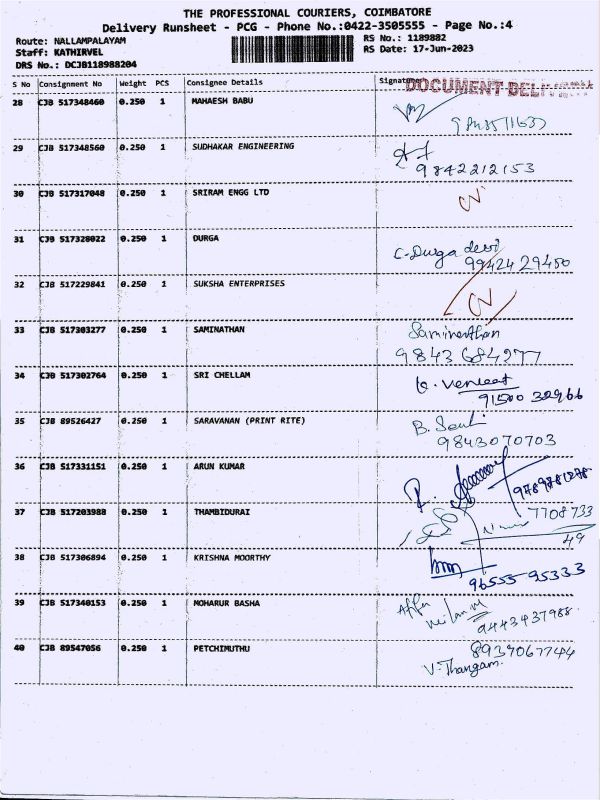 THE PROFESSIONAL COURIERS, COIMBATORE
Delivery Runsheet - PCG - Phone No.:0422-3505555 - Page No.:4
Route: NALLAMPALAYAM
Staff: KATHIRVEL
DRS No.: DCJB118988204
RS No.: 1189882
RS Date: 17-Jun-2023
S No Consignment No Weight PCS Consignee Details Signature
DOCUMENT DELIVERY
28 CJB 517348460 0.250 1 MAHAESH BABU
29 CJB 517348560 0.250 1 SUDHAKAR ENGINEERING
9842212153
30 CJB 517317048 0.250 1 SRIRAM ENGG LTD
31 CJB 517328022 0.250 1 DURGA
C. Durga devi
99424 29450
32 CJB 517229841 0.250 1 SUKSHA ENTERPRISES
33 CJB 517303277 0.250 1 SAMINATHAN
Saminathan
9843684277
34 CJB 517302764 0.250 1 SRI CHELLAM
91500 32966
35 CJB 89526427 0.250 1 SARAVANAN (PRINT RITE)
9843070703
36 CJB 517331151 0.250 1 ARUN KUMAR
37 CJB 517203988 0.250 1 THAMBIDURAI
7708733
49
38 CJB 517306894 0.250 1 KRISHNA MOORTHY
96555 95333
39 CJB 517340153 0.250 1 MOHARUR BASHA
9443437988
40 CJB 89547056 0.250 1 PETCHIMUTHU
8937067744
V. Thangam